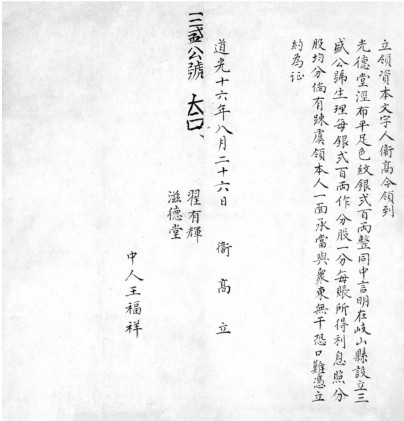 立領資本文字人衛高今領到
光德堂涇布平足色紋銀弍百兩整同中言明在岐山縣設立三
盛公號生理每銀弍百兩作分股一分每賬所得利息照分
股均分倘有踈虞領本人一面承當與衆東無干恐口難憑立
約為证
道光十六年八月二十六日 衛高立
三盛公號 合口
翟有輝
滋德堂
中人王福祥